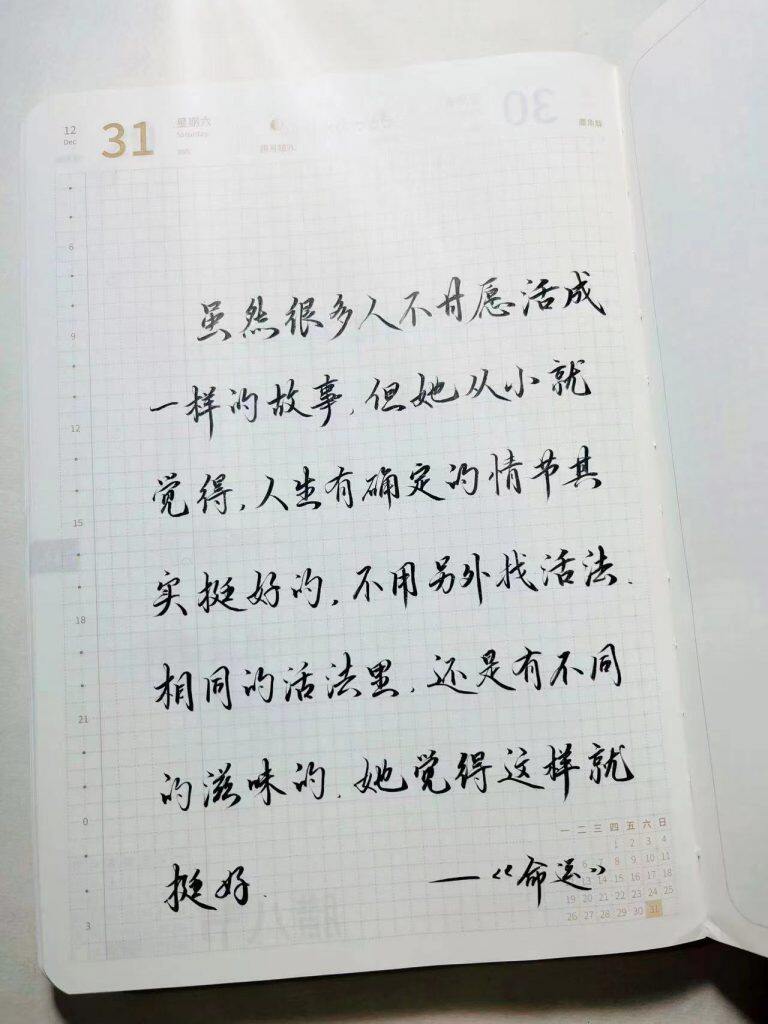 12
Dec
31
星期六
Saturday
30
6
9
12
15
18
21
0
3
虽然很多人不甘愿活成
一样的故事,但她从小就
觉得,人生有确定的情节其
实挺好的,不用另外找活法.
相同的活法里,还是有不同
的滋味的.她觉得这样就
挺好.
—《命运》
一 二 三 四 五 六 日
1 2 3 4
6 7 8 9 10 11
13 14 15 16 17 18
19 20 21 22 23 24 25
26 27 28 29 30 31